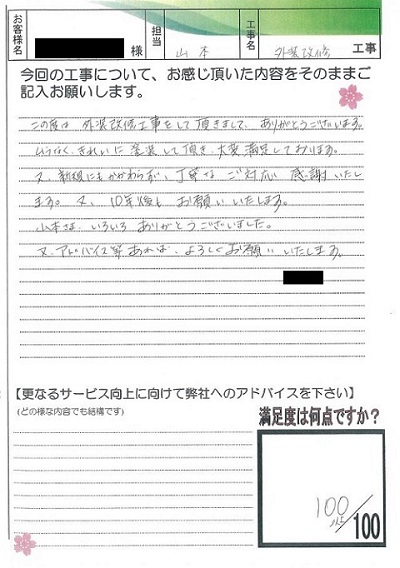 お客様名 様 担当 山本 工事名 外装改修 工事
今回の工事について、お感じ頂いた内容をそのままご
記入お願いします。
この度は 外装改修工事をして頂きまして、ありがとうございます。
ムラなく、きれいに塗装して頂き、大変満足しております。
又、新規にもかかわらず、丁寧な ご対応 感謝いたし
ます。又、10年後も お願いいたします。
山本さん、いろいろ ありがとうございました。
又、アドバイス等あれば、よろしくお願いいたします。
【更なるサービス向上に向けて弊社へのアドバイスを下さい】
(どの様な内容でも結構です)
満足度は何点ですか?
100
/100